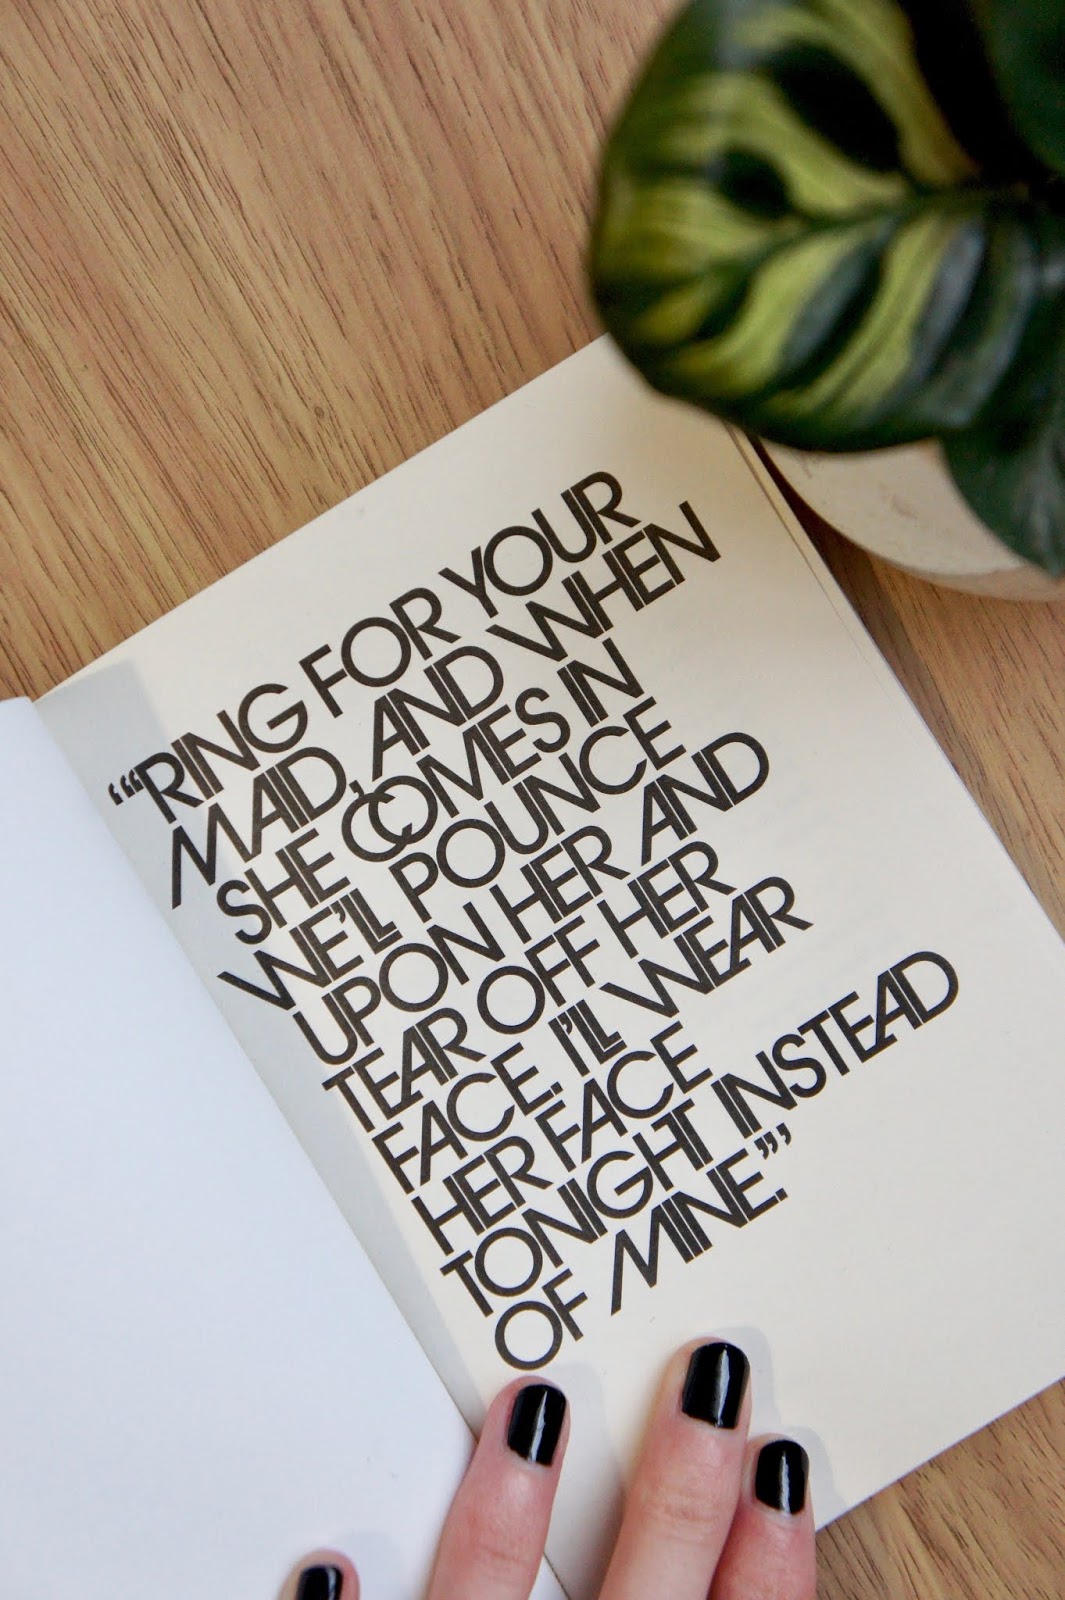 “‘“RING FOR YOUR
MAID, AND WHEN
SHE COMES IN
WE'LL POUNCE
UPON HER AND
TEAR OFF HER
FACE. I'LL WEAR
HER FACE
TONIGHT INSTEAD
OF MINE.”’